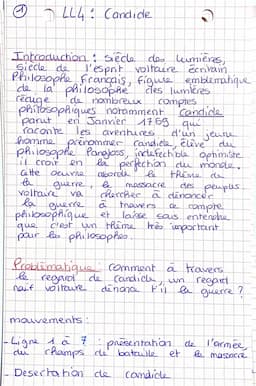 ① LL4 : Candide
Introduction : Siècle des lumières,
siècle de l'esprit voltaire écrivain
Philosophe Français, figure emblématique
de la philosophie des lumières
rédige de nombreux comptes
philosophiques notamment candide
parut en Janvier 1759 qui
raconte les aventures d'un jeune
homme prénommer candide, élève du
philosophe Pangloss, indéfectible optimiste
il croit en la perfection du monde,
cette oeuvre aborde le thème de
la guerre, le massacre des peuples.
voltaire va chercher à dénoncer
la guerre à travers ce compte
philosophique et laisse sous entendre
que c'est un thème très important
pour les philosophes.
Problématique : comment à travers
le regard de candide, un regard
naïf voltaire dénonce t'il la guerre ?
mouvements :
- Ligne 1 à 7 : présentation de l'armée,
du champs de bataille et le massacre
- Desertation de candide